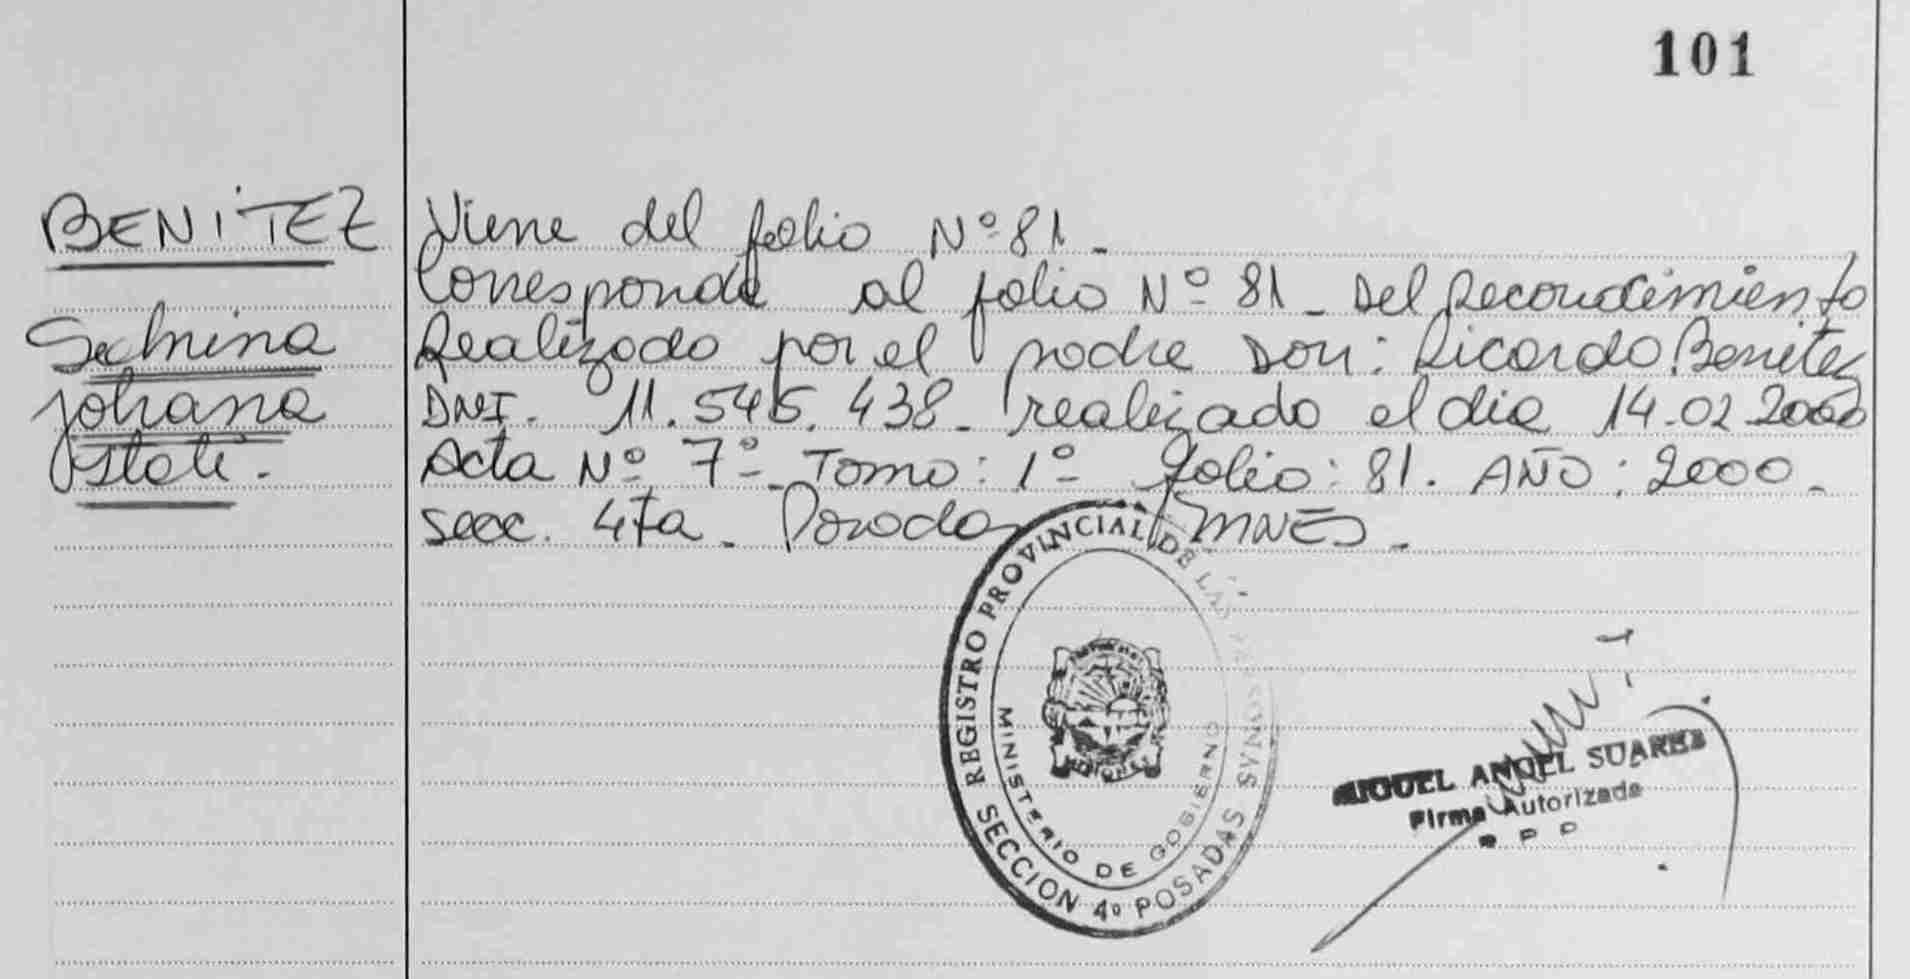 101
BENITEZ
Johana
Viene del folio Nº 81-
Corresponde al folio Nº 81 - Del Reconocimiento
Realizado por el padre Don: Ricardo Benitez
DNI. 11.545.438- realizado el dia 14-02 2000
Acta Nº 7º- Tomo: 1º folio: 81. AÑO: 2000-
secc. 4ta - Posadas MNES-
REGISTRO PROVINCIAL DE LAS PERSONAS
MINISTERIO DE GOBIERNO
SECCION 4º POSADAS
MIGUEL ANGEL SUAREZ
Firma Autorizada